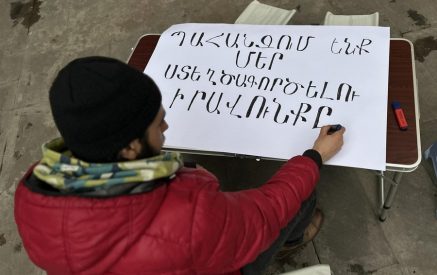 ՊԱՀԱՆՋՈՒՄ ԵՆՔ
ՄԵՐ
ՍՏԵՂԾԱԳՈՐԾԵԼՈՒ
ԻՐԱՎՈՒՆՔԸ